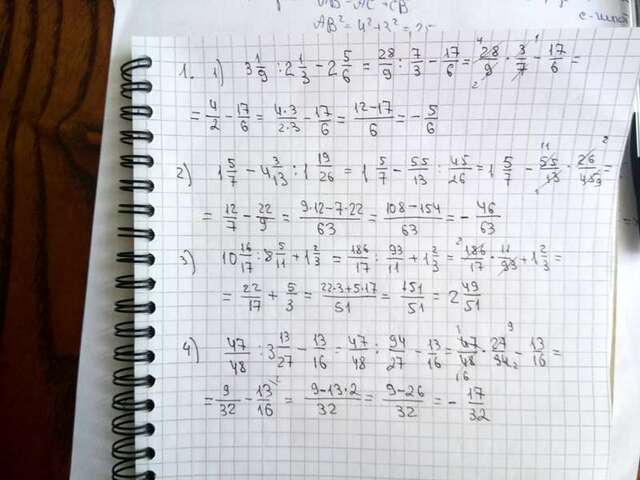 1. 1) 3 1/9 : 2 1/3 - 2 5/6 = 28/9 : 7/3 - 17/6 = 28/9 · 3/7 - 17/6 =
= 4/2 - 17/6 = 4·3/2·3 - 17/6 = 12-17/6 = - 5/6
2) 1 5/7 - 4 3/13 : 1 19/26 = 1 5/7 - 55/13 : 45/26 = 1 5/7 - 55/13 · 26/45 =
= 12/7 - 22/9 = 9·12-7·22/63 = 108-154/63 = - 46/63
3) 10 16/17 : 8 5/11 + 1 2/3 = 186/17 : 93/11 + 1 2/3 = 186/17 · 11/93 + 1 2/3 =
= 22/17 + 5/3 = 22·3+5·17/51 = 151/51 = 2 49/51
4) 47/48 : 3 13/27 - 13/16 = 47/48 : 94/27 - 13/16 = 47/48 · 27/94 - 13/16 =
= 9/32 - 13/16 = 9-13·2/32 = 9-26/32 = - 17/32